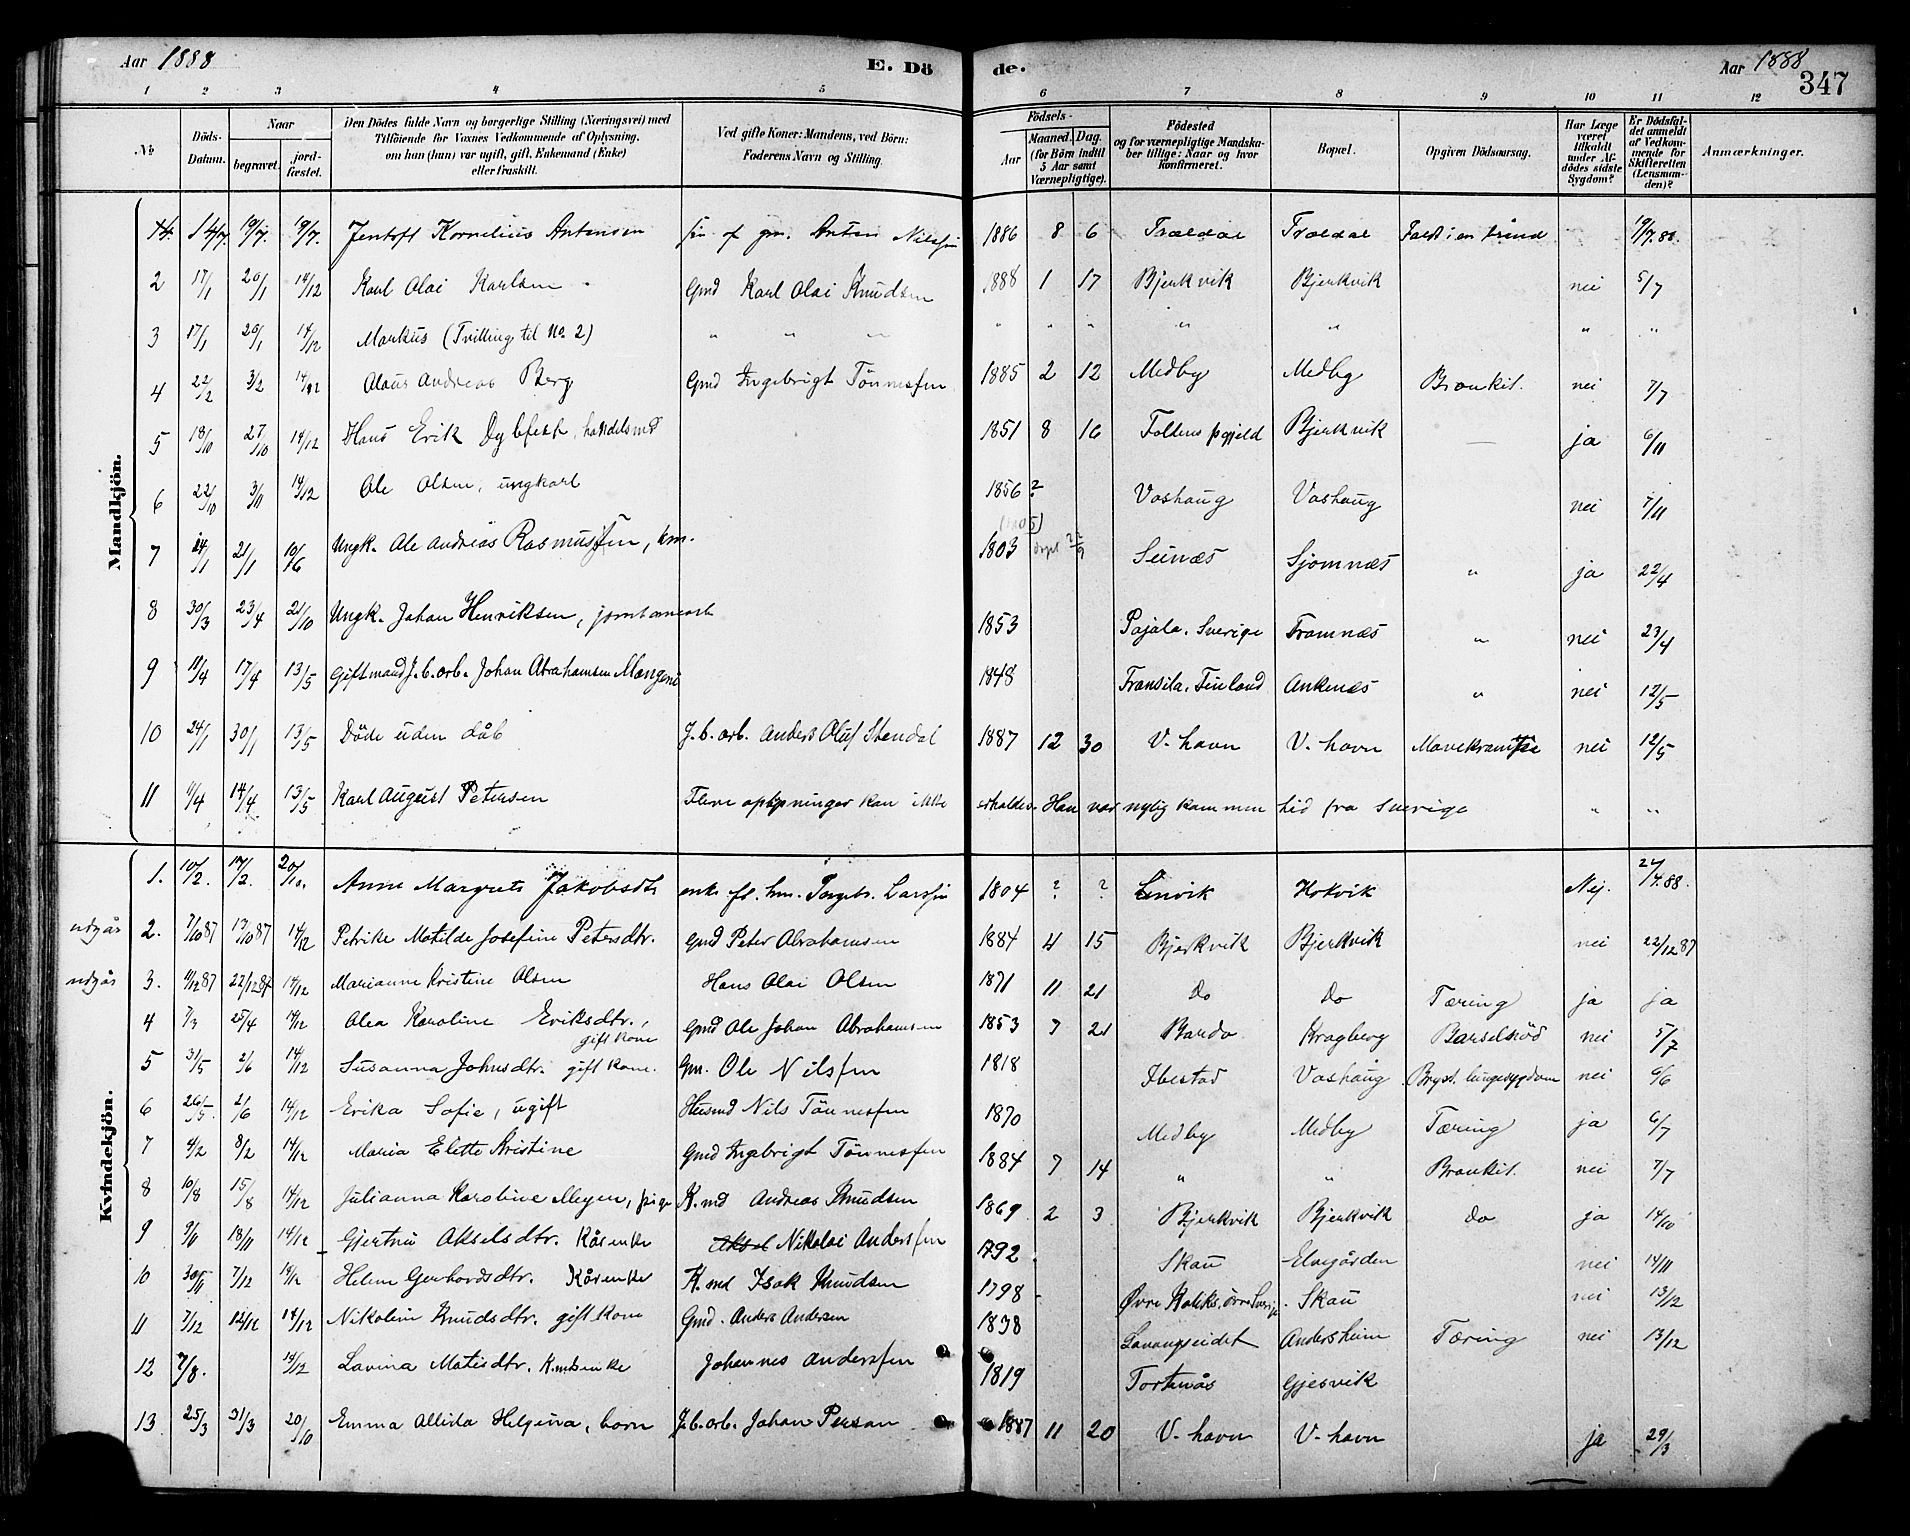 Aar 1888 E. Döde. Aar 1888 347
1 2 3 4 5 6 7 8 9 10 11 12
No Döds-Datum. Naar begravet. jordfæstet. Den Dödes fulde Navn og borgerlige Stilling (Næringsvei) med Tilföiende for Voxnes Vedkommende af Oplysning, om han (hun) var ugift, gift, Enkemand (Enke) eller fraskilt. Ved gifte Koner: Mandens, ved Börn: Faderens Navn og Stilling. Födsels- Aar Maaned. Dag. (for Börn indtil 5 Aar samt Værnepligtige). Födested og for værnepligtige Mandskaber tillige: Naar og hvor konfirmeret. Bopæl. Opgiven Dödsaarsag. Har Læge været tilkaldt under Afdödes sidste Sygdom? Er Dödsfaldet anmeldt af Vedkommende for Skifteretten (Lensmanden)? Anmærkninger.
Mandkjön.
14/7. 19/7. 19/7. Jentoft Kornelius Antonsen sön af gm. Anton Nilssen 1886 8 6 Traldal Traldal Faldt i en brönd 19/7.88.
2 17/1 20/1 14/12 Karl Olai Karlsen Gmd Karl Olai Knudsen 1888 1 17 Bjerkvik Bjerkvik nei 5/7
3 17/1 20/1 14/12 Markus (Tvilling til No. 2) " " " " " " " " " "
4 22/2 3/2 14/12 Olaus Andreas Berg Gmd Ingebrigt Tönnesfen 1885 2 12 Medby Medby Bronkit. nei 7/7
5 18/10 27/10 14/12 Hans Erik Dybfest, handelsmd 1851 8 16 Foldens pgjeld Bjerkvik — ja 6/11
6 22/10 3/11 14/12 Ole Olsen, ungkarl 1856 ? Vashaug Vashaug nei 7/11
7 14/1 21/1 10/6 Ungk. Ole Andreas Rasmussen, km. 1803 (1805) döpt 22/9 Seinæs Sjomnæs " ja 22/4
8 30/3 23/4 21/10 Ungk. Johan Henriksen, jernbanearb 1853 Pajala, Sverige Framnæs " nei 23/4
9 11/4 17/4 13/5 Giftmand J.b.arb. Johan Abrahamsen Mangeni 1848 Fransila, Finland Ankenæs " nei 12/5
10 24/1 30/1 13/5 Döde uden dåb J.b.arb. Anders Oluf Stendal 1887 12 30 V. havn V. havn Mavekrampe nei 12/5
11 11/4 14/4 13/5 Karl August Petersen Flere oplysninger kan ikke erholdes. Han var nylig kommen hid fra Sverige " "
Kvindekjön.
1. 10/2. 17/2. 20/10. Anne Margrete Jakobsdtr enke ef. hm. Ingebr. Larssen 1804 ? ? Lenvik Hokvik Nej. 24/7.88.
udgår 2. 7/10 87 17/10 87 14/12 Petrike Matilde Josefine Petersdtr. Gmd Peter Abrahamsen 1884 4 15 Bjerkvik Bjerkvik nei 22/12 87
udgår 3. 11/12 87 22/12 87 14/12 Marianne Kristine Olsen Hans Olai Olsen 1871 11 21 Do Do Tæring ja ja
4 7/3 25/4 14/12 Olea Karoline Eriksdtr., gift kone Gmd Ole Johan Abrahamsen 1853 7 21 Bardo Kragberg Barselnöd nei 5/7
5 31/5 2/6 14/12 Susanna Johnsdtr. gift kone. Gm. Ole Nilsfen 1818 Ibestad Vashaug Bryst. lungesygdom nei 6/6
6 26/5. 2/6 14/12 Erika Sofie, ugift Husmd Nils Tönnesfen 1870 Medby Medby Tæring ja 6/7
7 4/2 8/2 14/12 Maria Elette Kristine Gmd Ingebrigt Tönnesfen 1884 7 14 " " Bronkit. nei 7/7
8 10/8 15/8 14/12 Julianna Karoline Meyer, pige K.md Andreas Knudsen 1869 2 3 Bjerkvik Bjerkvik do ja 14/10
9 9/11 18/11 14/12 Gjertru Akselsdtr. Kårenke Aksel Nikolai Andersfen 1792 Skau Elvegården nei 14/11
10 30/11 7/12 14/12 Helene Gerhardsdtr. Kårenke K.md Isak Knudsen 1798 Øvre Kaliks, övre Sverige. Skau nei 13/12
11 7/12 12/12 14/12 Nikoline Knudsdtr. gift kone Gmd. Anders Andersen 1838 Lavangseidet Andersheim Tæring nei 13/12
12 7/8. 14/12 Lavina Matisdtr. Johannes Andersfen 1819 Tortnås Gjesvik
13 25/3 31/3 20/10 Emma Allida Helgina, barn J.b.arb. Johan Person 1887 11 20 V. havn V. havn ja 29/3